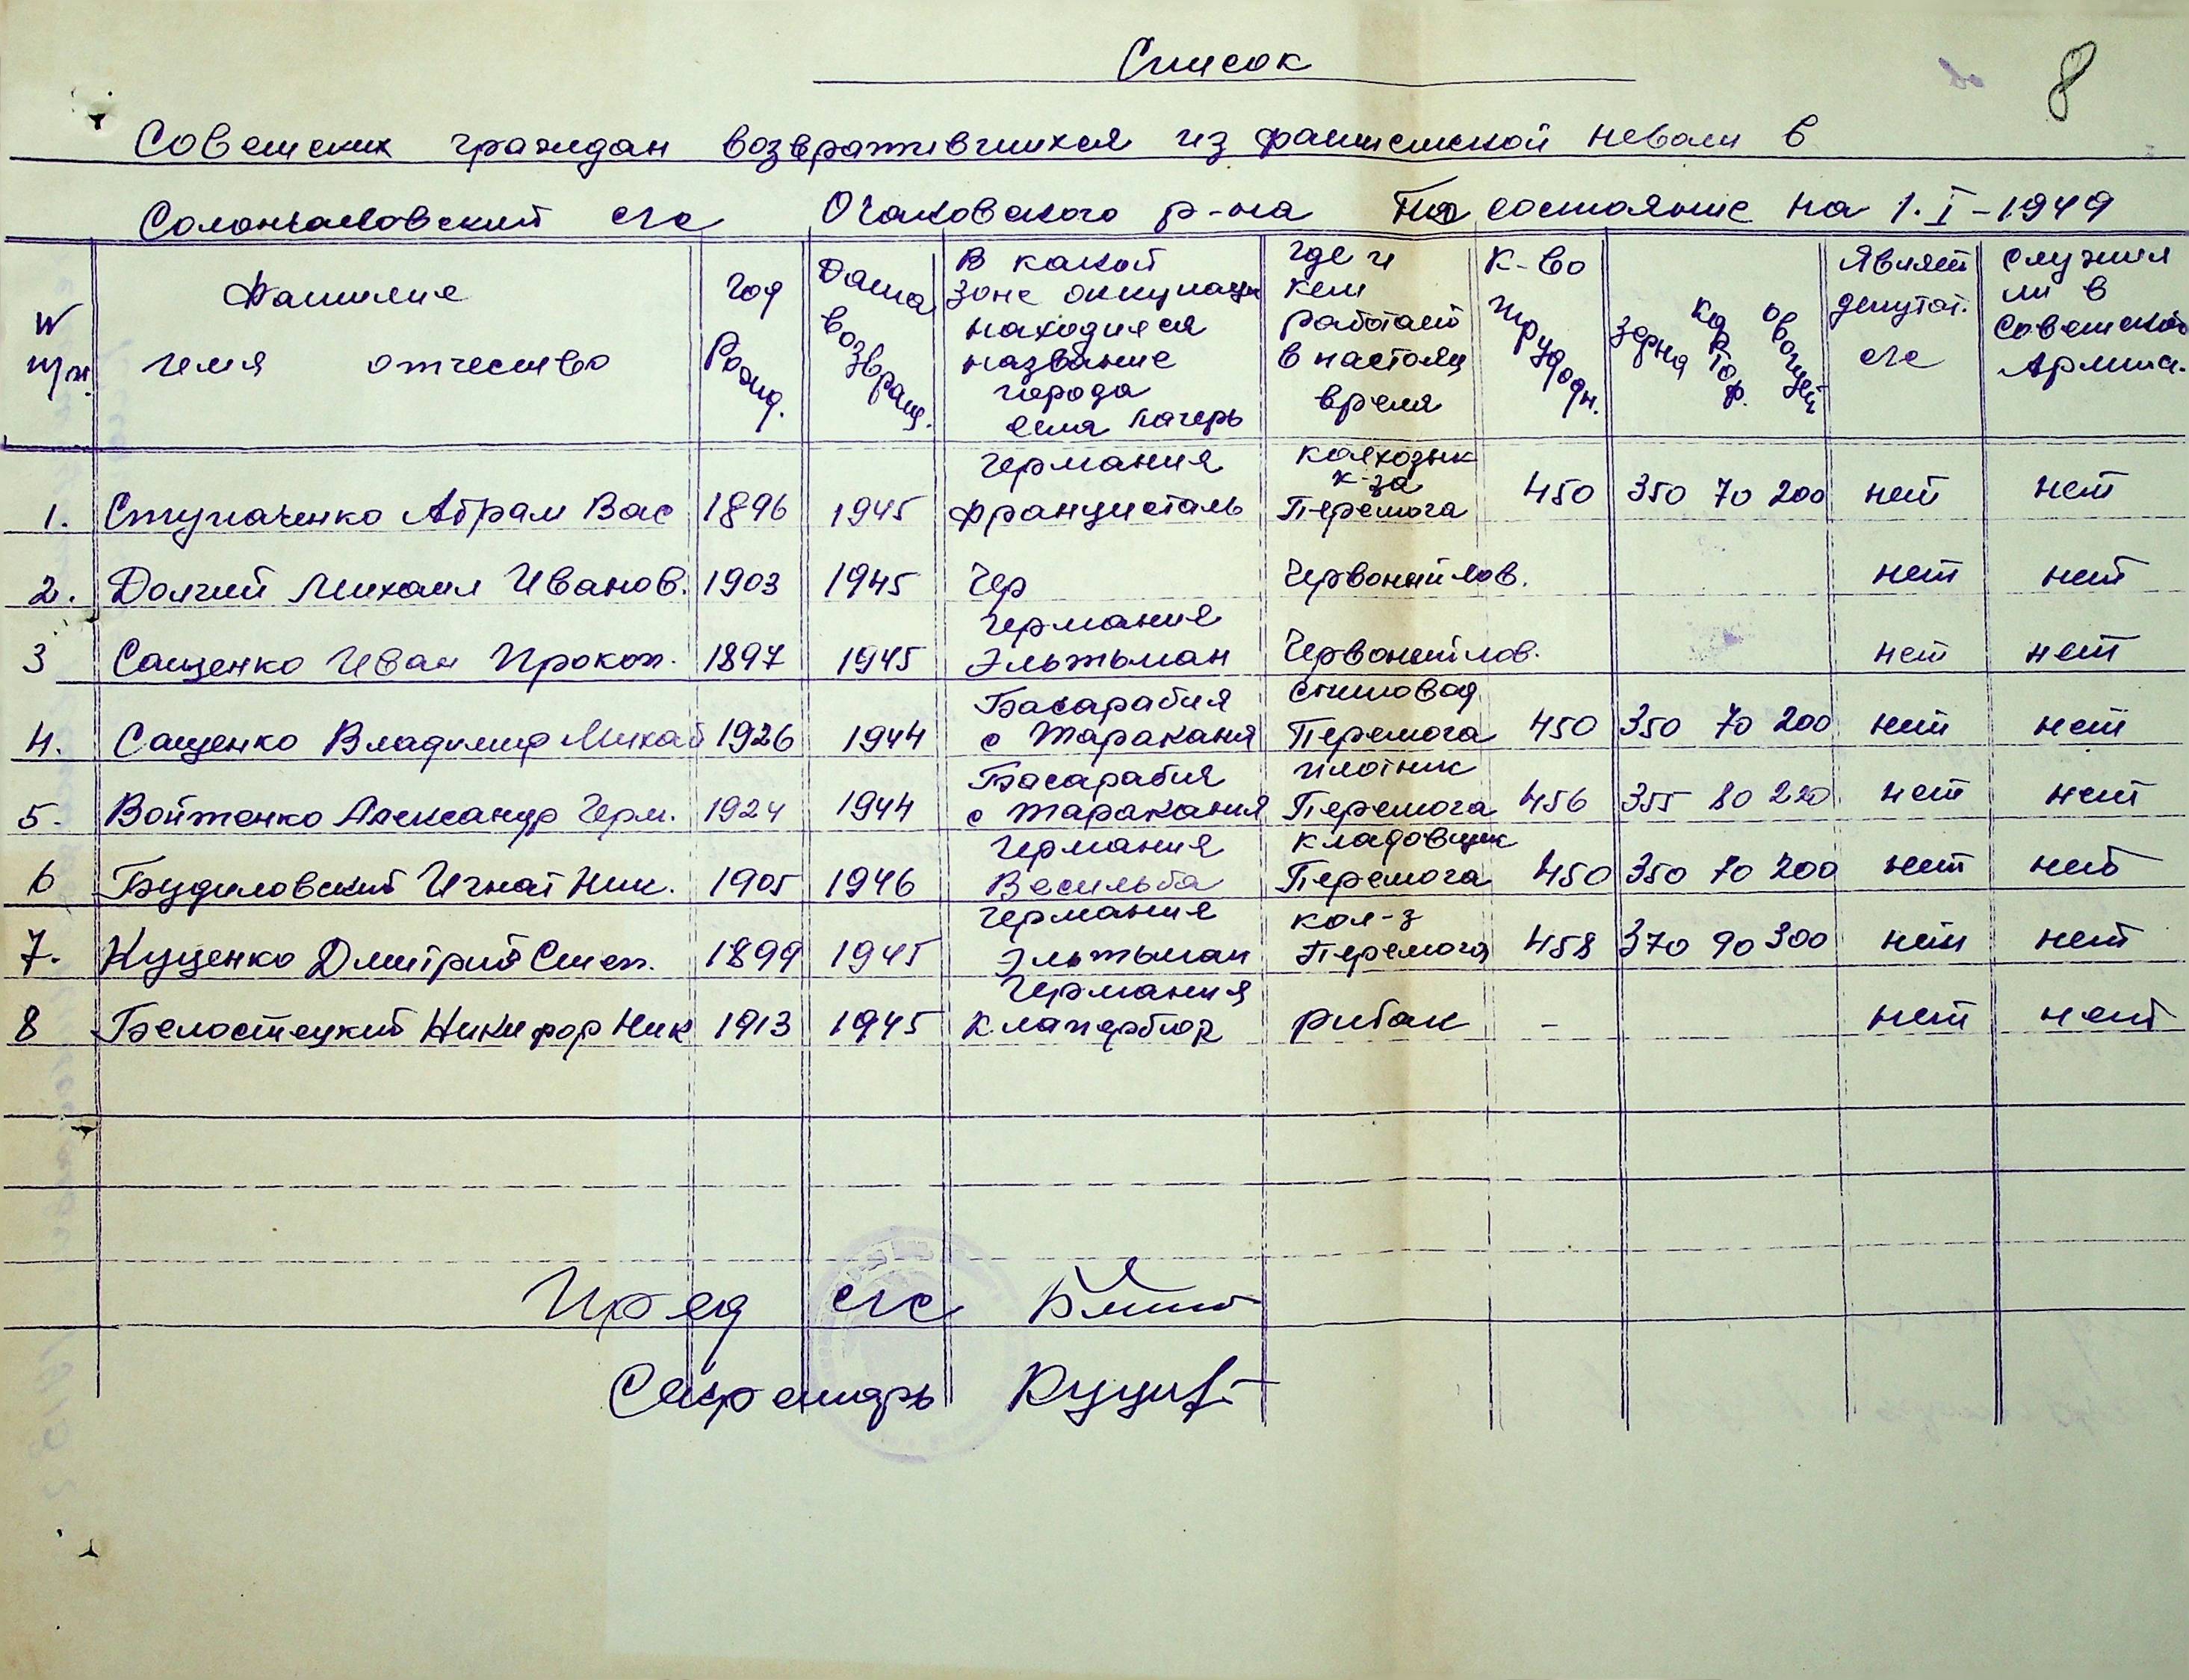 Список
8
Советских граждан возвратившихся из фашистской неволи в
Солончаковский с/с Очаковского р-на По состояние на 1.I-1949
N п/п. Фамилие имя отчество Год Рожд. Дата возвращ. В какой зоне оккупации находился название города села лагерь Где и кем работает в настоящ время К-во трудодн. зерна картоф. овощей Являет депутат. с/с служил ли в Советской Армии.
1. Ступаченко Абрам Вас 1896 1945 Германия Францисталь колхозник к-за Перемога 450 350 70 200 нет нет
2. Долгий Михаил Иванов. 1903 1945 Гер Червоный лов. нет нет
3 Сащенко Иван Прокоп. 1897 1945 Германия Эльтьман Червоный лов. нет нет
4. Сащенко Владимир Михай 1926 1944 Басарабия с Таракания Перемога 450 350 70 200 нет нет
5. Войтенко Александр Герм. 1924 1944 Басарабия с Таракания плотник Перемога 456 355 80 220 нет нет
6 Будиловский Игнат Ник. 1905 1946 Германия Весильба кладовщик Перемога 450 350 70 200 нет нет
7. Куценко Дмитрий Степ. 1899 1945 Германия Эльтьман кол-з Перемога 458 370 90 300 нет нет
8 Белостецкий Никифор Ник 1913 1945 Германия Клапербюр рибак - нет нет
Пред с/с
Секретарь